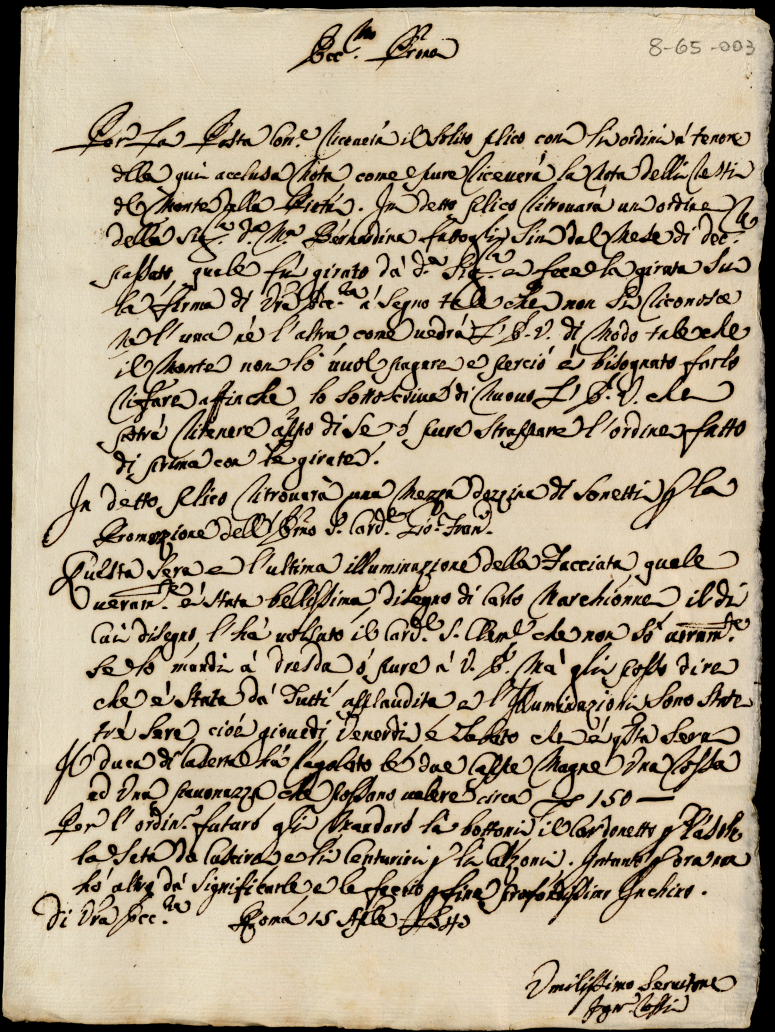 8-65-003
Ecc.mo Prnē
Per la Posta Corr.e riceverà il solito plico con li ordini à tenore
della quì acclusa Nota come pure riceverà la Nota delli Resti
del Monte della Pietà. In detto plico ritrovarà un ordine
della Sig.ra D.a M.a Bernardina fattogli sin dal Mese di Dec.e
passato quale fù girato dà d.a Sig.ra e fece la girata su
la firma di Vrā Ecc.za à segno tale che non si riconosce
nè l'una nè l'altra come vedrà L' E. V. di modo tale che
il Monte non lo vuol pagare e perciò è bisognato farlo
rifare affinche lo sottoscriva di nuovo L' E. V. che
potrà ritenere app̄o di se ò pure strappare l'ordine fatto
di prima con le girate.
In detto plico ritrovarà una mezza dozzina di Sonetti p la
Promozione dell' Emo S. Card.e Gio. Fran.
Questa sera è l'ultima illuminazione della Facciata quale
veram.te è stata bellissima, disegno di Carlo Marchionne il di
cui disegno l'hà voluto il Card.e S. Clem.e che non sò veram.te
se lo mandi à Dresda ò pure à V. E. Mà gli posso dire
che è stata dà Tutti applaudita e l'Illuminazioni sono state
trè sere, cioè giovedì Venerdì e Sabato che è qsta sera
Il Duca di Caserta hà regalato le due Cappe Magne una rossa
ed una pavonazza che possano valere circa 150 —
Per l'ordin.o futuro gli mandarò la bottoni il Cordonetto p l'Asole
la Seta da cuscire e li Centurini p li Calzoni. Intanto p ora non
hò altro dà significarle e le faccio p fine profondissimo Inchino.
Di Vrā Ecc.za Roma 15 Aple
Umilissimo Servitore